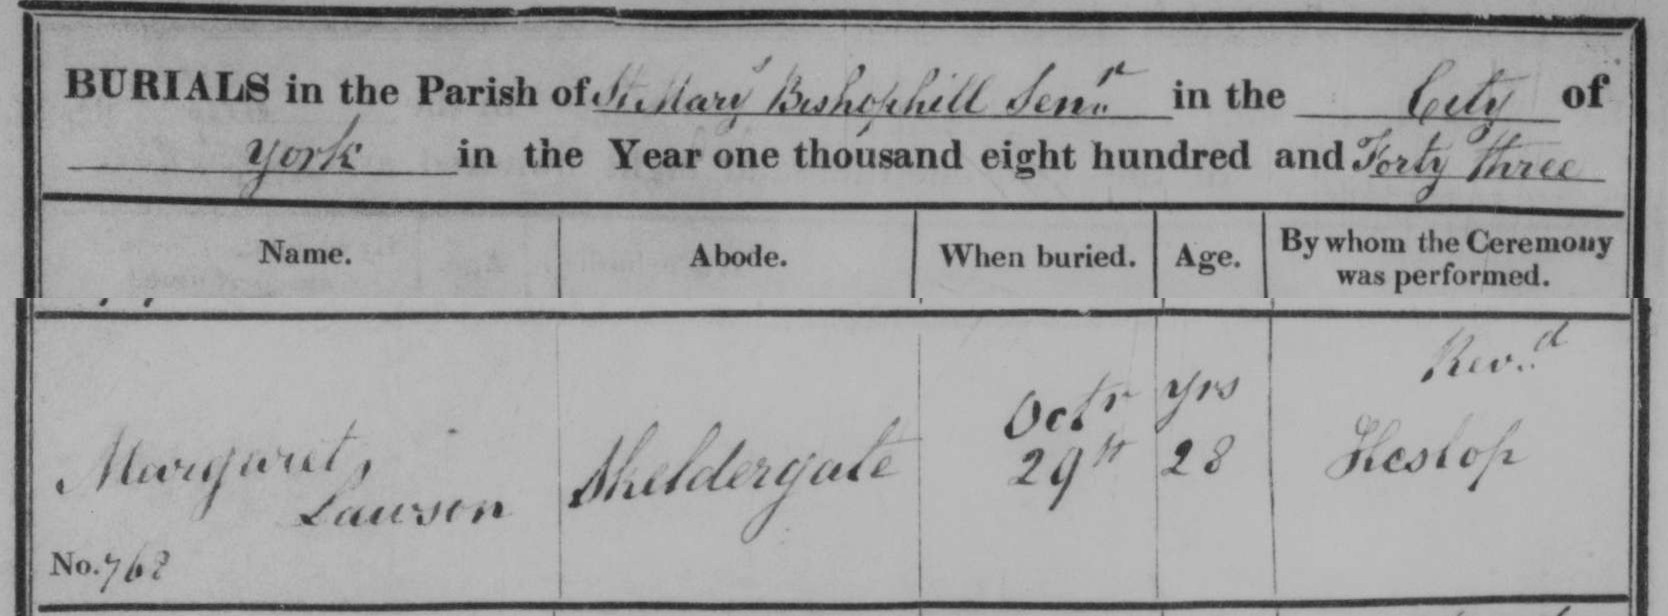 BURIALS in the Parish of St Mary's Bishophill Senr in the City of
York in the Year one thousand eight hundred and Forty three
Name. Abode. When buried. Age. By whom the Ceremony
was performed.
Revd
Octr yrs
Margaret Skeldergate 29th 28 Heslop
Lawson
No. 768